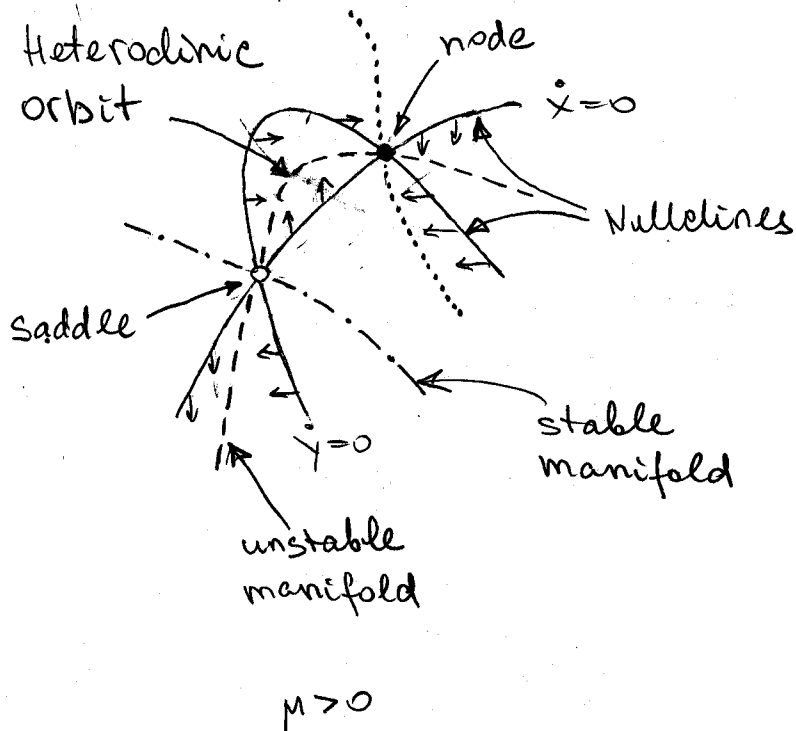 Heteroclinic
orbit
node
ẋ=0
Nullclines
saddle
ẏ=0
stable
manifold
unstable
manifold
μ>0